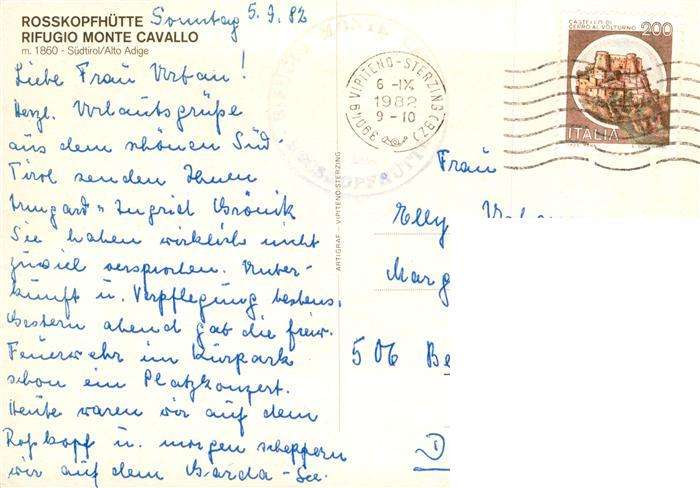 ROSSKOPFHÜTTE
RIFUGIO MONTE CAVALLO
m. 1860 - Südtirol/Alto Adige
Sonntag 5.9.82
Liebe Frau Urban!
Herzl. Urlaubsgrüße
aus dem schönen Süd-
Tirol senden Ihnen
Irmgard u. Ingrid
Sie haben wirklich nicht
zuviel versprochen. Unter-
kunft u. Verpflegung bestens.
Gestern abend gab die freiw.
Feuerwehr im Kurpark
schon ein Platzkonzert.
Heute waren wir auf dem
Roßkopf u. morgen scheppern
wir auf dem Garda-See.
ARTIGRAF - VIPITENO-STERZING
39049 VIPITENO-STERZING (BZ)
6-IX
1982
9-10
CASTELLO DI
CERRO AL VOLTURNO
200
ITALIA
Frau
Elly
Marg
506 Be
D